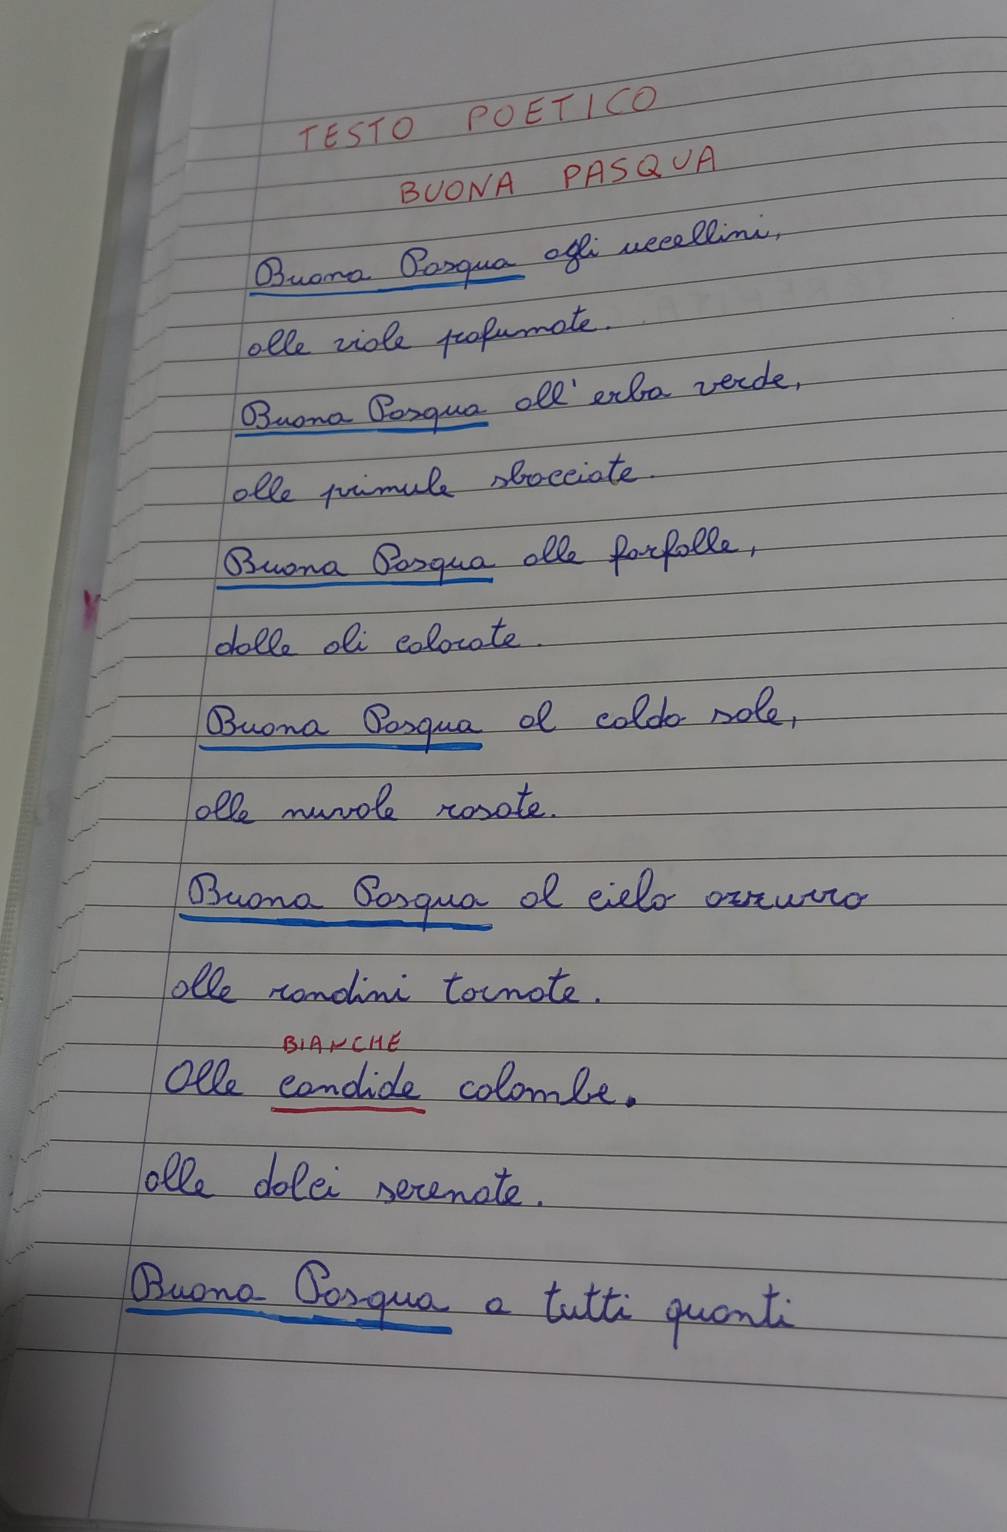 TESTO POETICO
BUONA PASQUA
Buona Pasqua agli uccellini,
alle viole profumate.
Buona Pasqua all'erba verde,
alle primule sbocciate.
Buona Pasqua alle farfalle,
dalle ali colorate.
Buona Pasqua al caldo sole,
alle nuvole rosate.
Buona Pasqua al cielo azzurro
alle rondini tornate.
BIANCHE
Alle candide colombe.
alle dolci serenate.
Buona Pasqua a tutti quanti